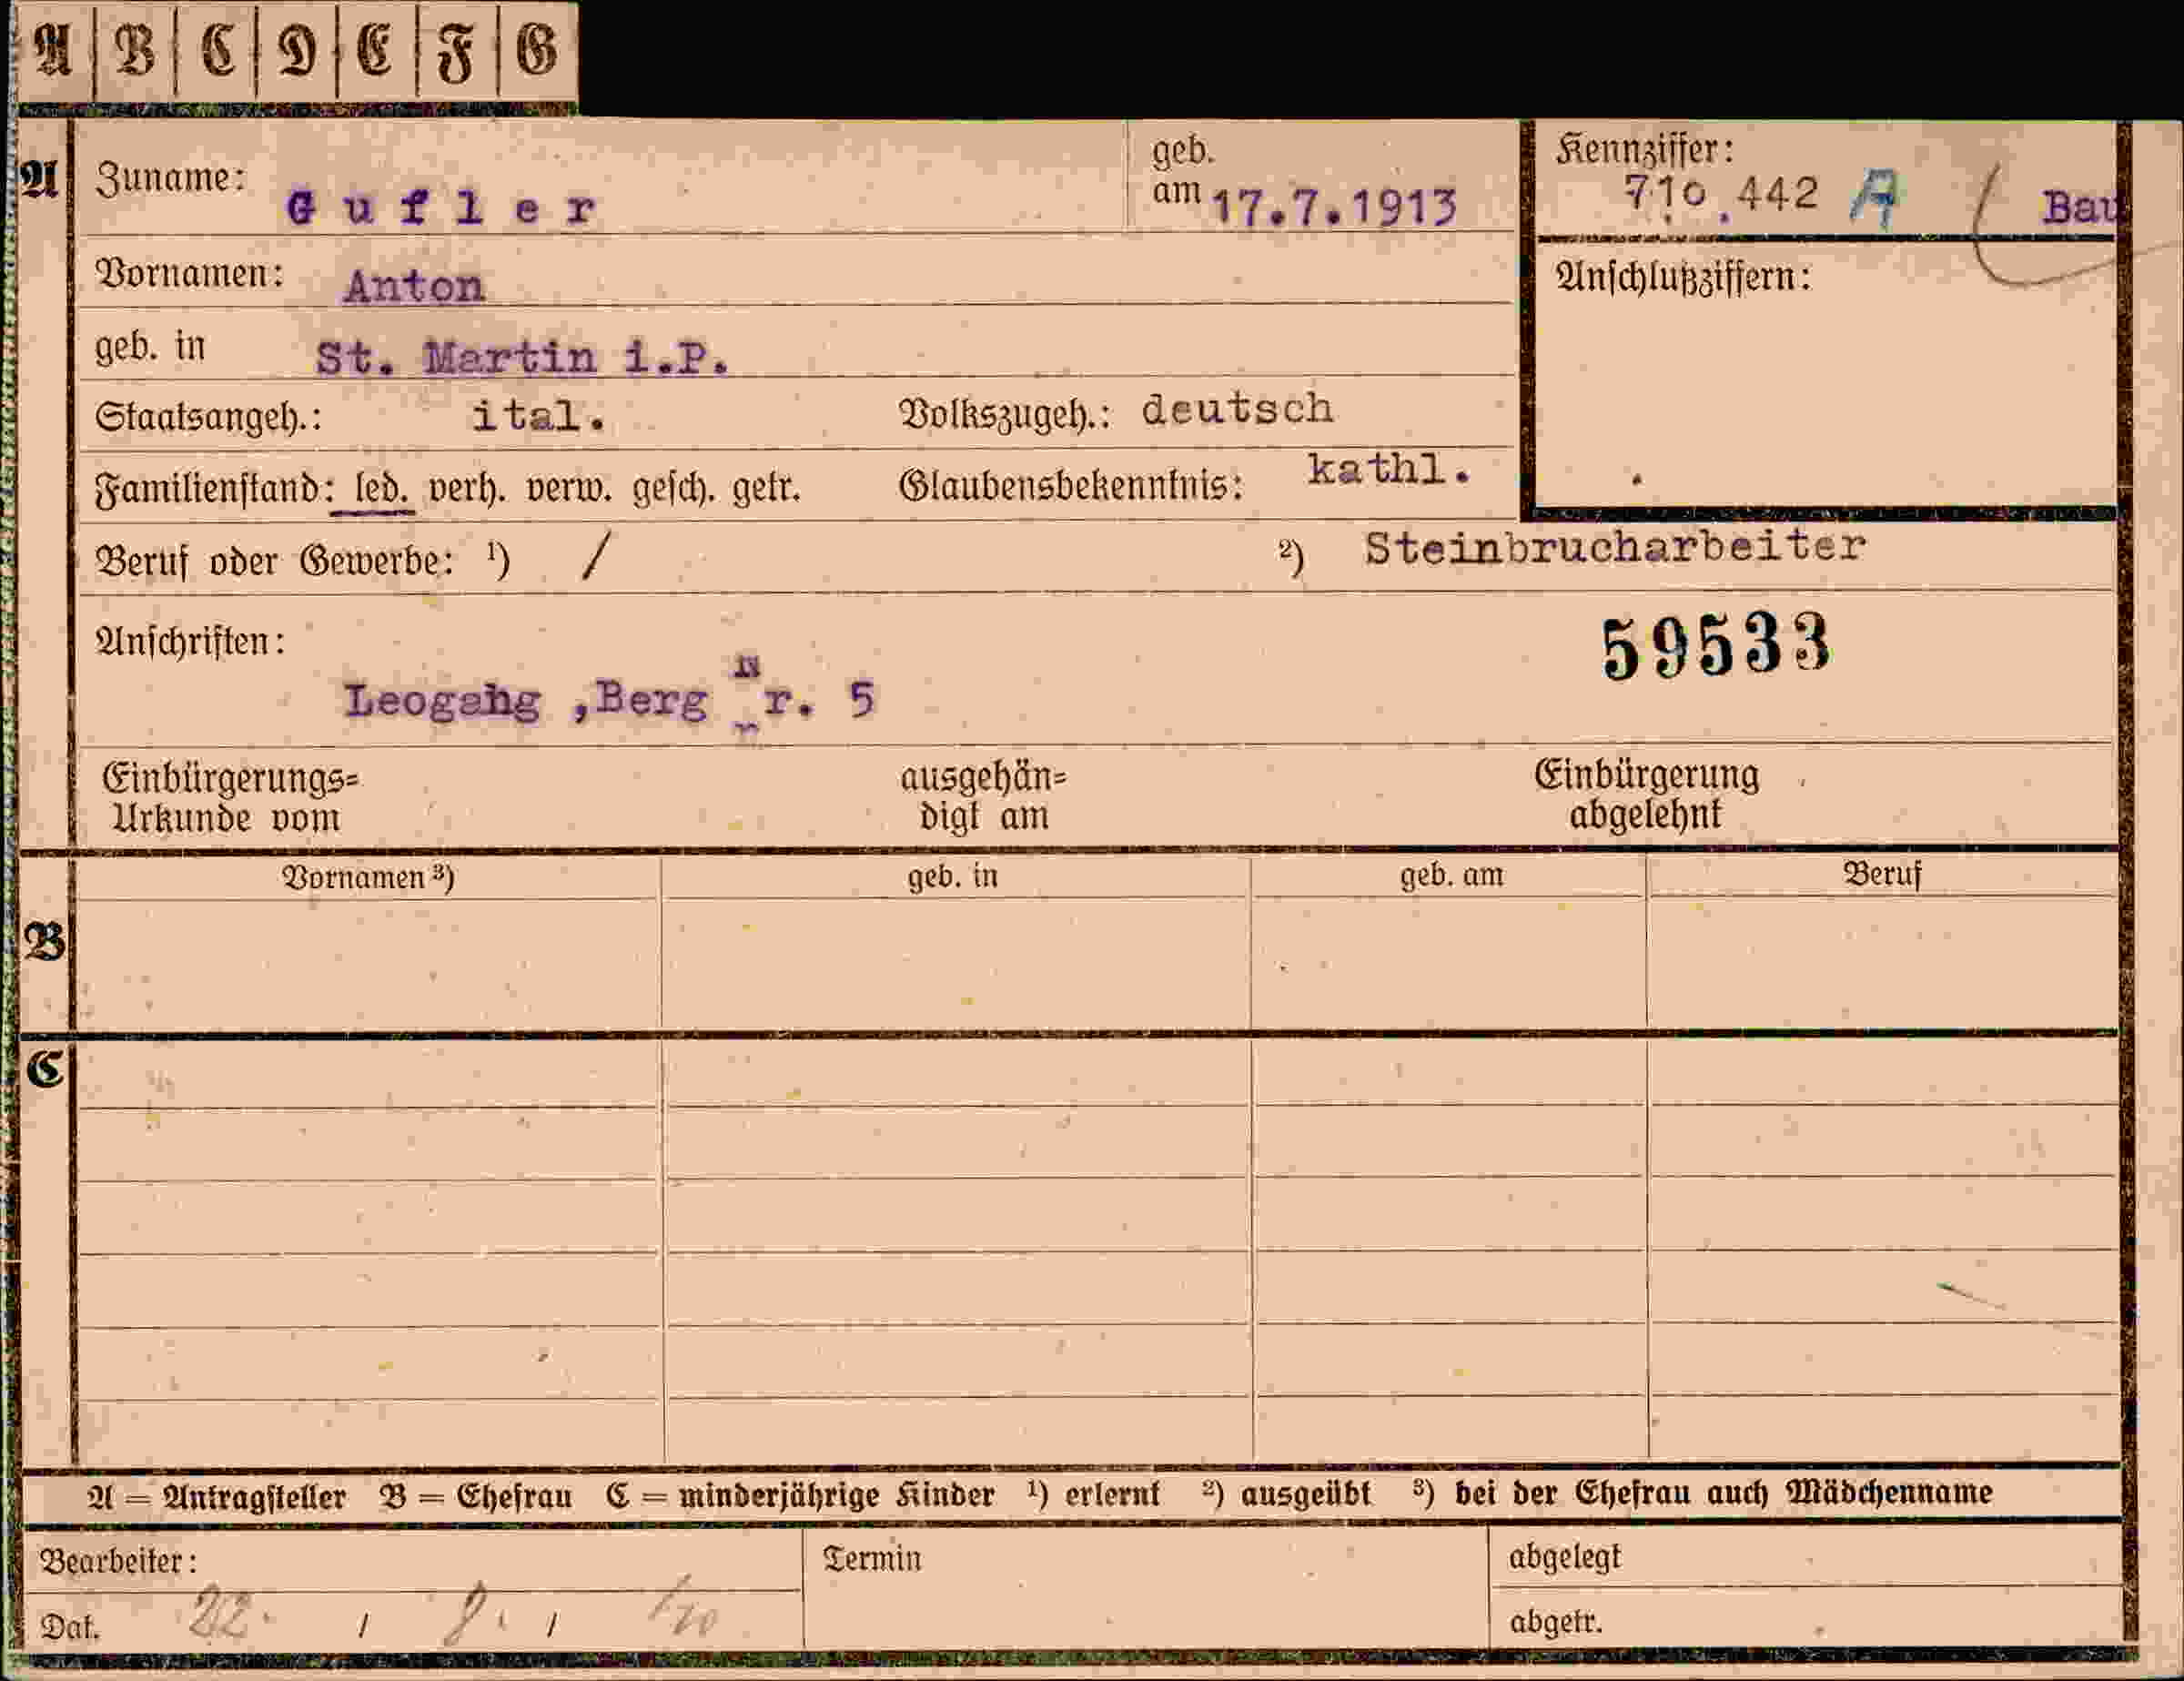 A B C D E F G
A Zuname: Gufler geb. am 17.7.1913 Kennziffer: 710.442 A / Bau
Vornamen: Anton Anschlußziffern:
geb. in St. Martin i.P.
Staatsangeh.: ital. Volkszugeh.: deutsch
Familienstand: led. verh. verw. gesch. getr. Glaubensbekenntnis: kathl.
Beruf oder Gewerbe: ¹) / ²) Steinbrucharbeiter
Anschriften: 59533
Leogahg ,Berg Nr. 5
Einbürgerungs= ausgehän= Einbürgerung
Urkunde vom digt am abgelehnt
Vornamen ³) geb. in geb. am Beruf
B
C
A = Antragsteller B = Ehefrau C = minderjährige Kinder ¹) erlernt ²) ausgeübt ³) bei der Ehefrau auch Mädchenname
Bearbeiter: Termin abgelegt
Dat. 22. / 8. / abgetr.